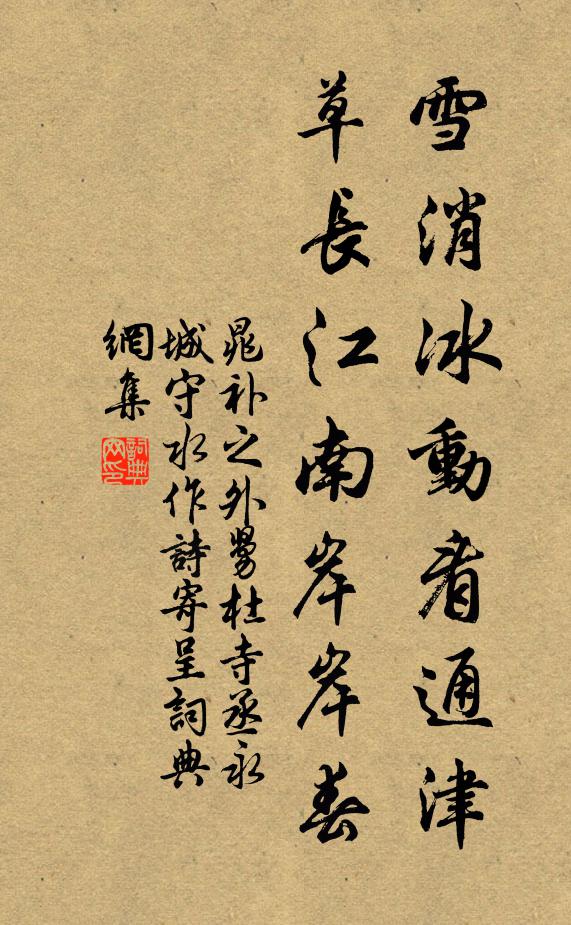 雪消冰動看通津
草長江南岸岸春
晁补之外舅杜寺丞永
城守水作詩寄呈詞典
網集
詞典
网印